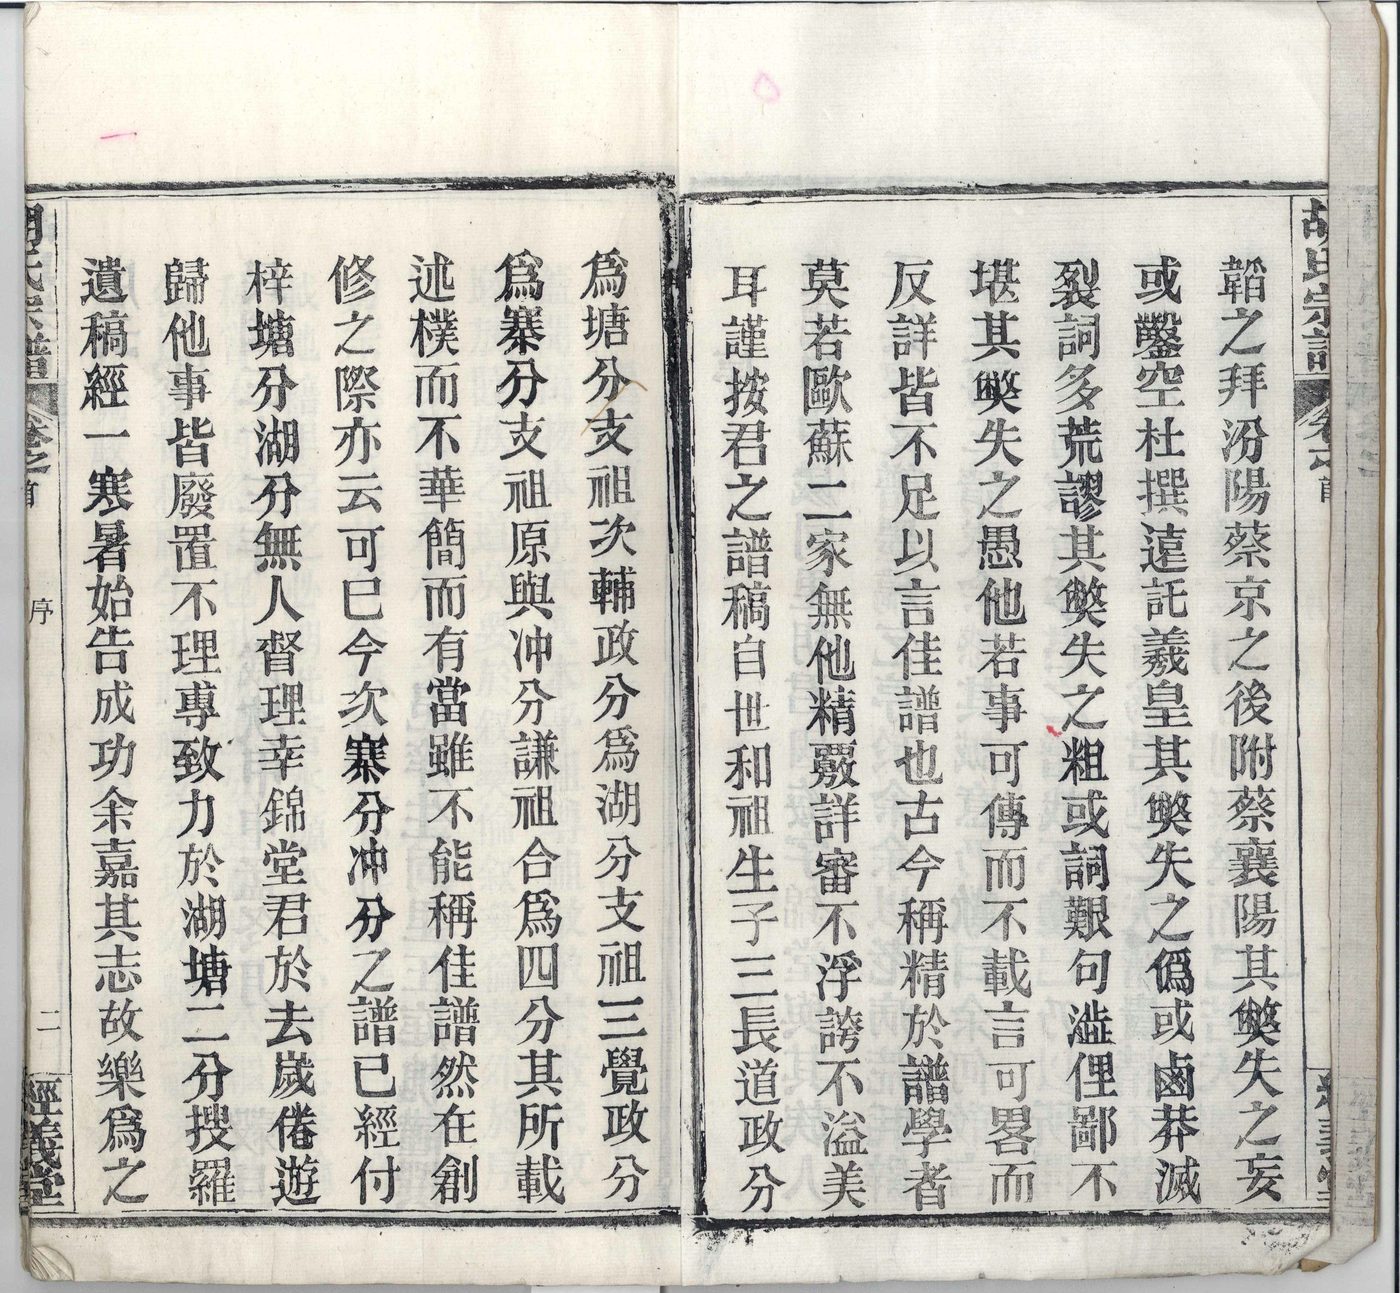 胡氏宗譜 卷之首
韜之拜汾陽蔡京之後附蔡襄陽其獘失之妄
或鑿空杜撰遠託羲皇其獘失之僞或鹵莽滅
裂詞多荒謬其獘失之粗或詞艱句澁俚鄙不
堪其獘失之愚他若事可傳而不載言可畧而
反詳皆不足以言佳譜也古今稱精於譜學者
莫若歐蘇二家無他精覈詳審不浮誇不溢美
耳謹按君之譜稿自世和祖生子三長道政分
爲塘分支祖次輔政分爲湖分支祖三覺政分
爲寨分支祖原與冲分謙祖合爲四分其所載
述樸而不華簡而有當雖不能稱佳譜然在創
修之際亦云可巳今次寨分冲分之譜已經付
梓塘分湖分無人督理幸錦堂君於去嵗倦遊
歸他事皆廢置不理專致力於湖塘二分搜羅
遺稿經一寒暑始告成功余嘉其志故樂爲之
胡氏宗譜 卷之首 序 二 經義堂